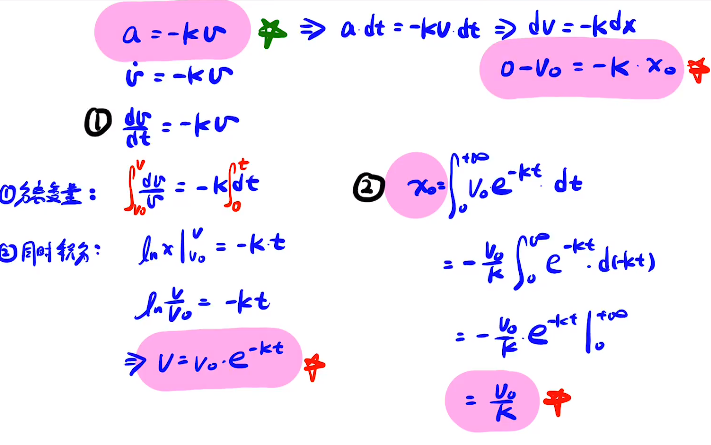 a = -kv ☆ ⇒ a·dt = -kv·dt ⇒ dv = -kdx
v̇ = -kv
0 - v₀ = -k·x₀ ☆
① dv/dt = -kv
①分离变量: ∫_{v₀}^{v} dv/v = -k∫_{0}^{t} dt
②同时积分: ln x |_{v₀}^{v} = -k·t
ln v/v₀ = -kt
⇒ v = v₀·e^{-kt} ☆
② x₀ = ∫_{0}^{+∞} v₀e^{-kt}·dt
= -v₀/k ∫_{0}^{+∞} e^{-kt}·d(-kt)
= -v₀/k·e^{-kt} |_{0}^{+∞}
= v₀/k ☆